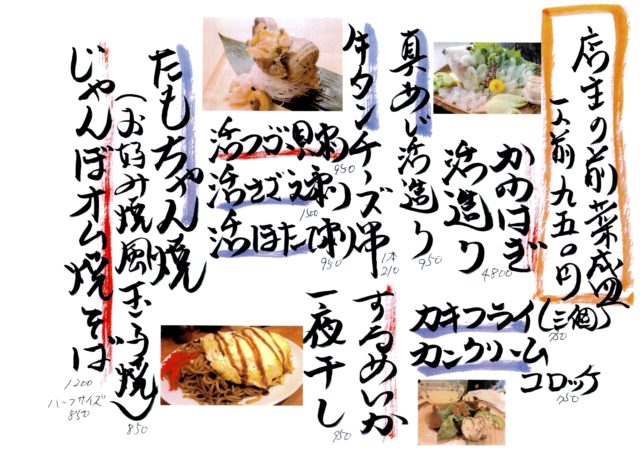 店主の前菜盛皿
一人前 九五〇円
かわはぎ
活造り
4800
真あじ活造り
950
牛タンチーズ串
1本
210
活つぶ貝刺
950
活さざえ刺り
1500
活ほたて刺り
950
カキフライ(三個)
750
カニクリーム
コロッケ
750
するめいか
一夜干し
950
たもちゃん焼
(お好み焼風玉子焼)
850
じゃんぼオム焼そば
1200
ハーフサイズ
850